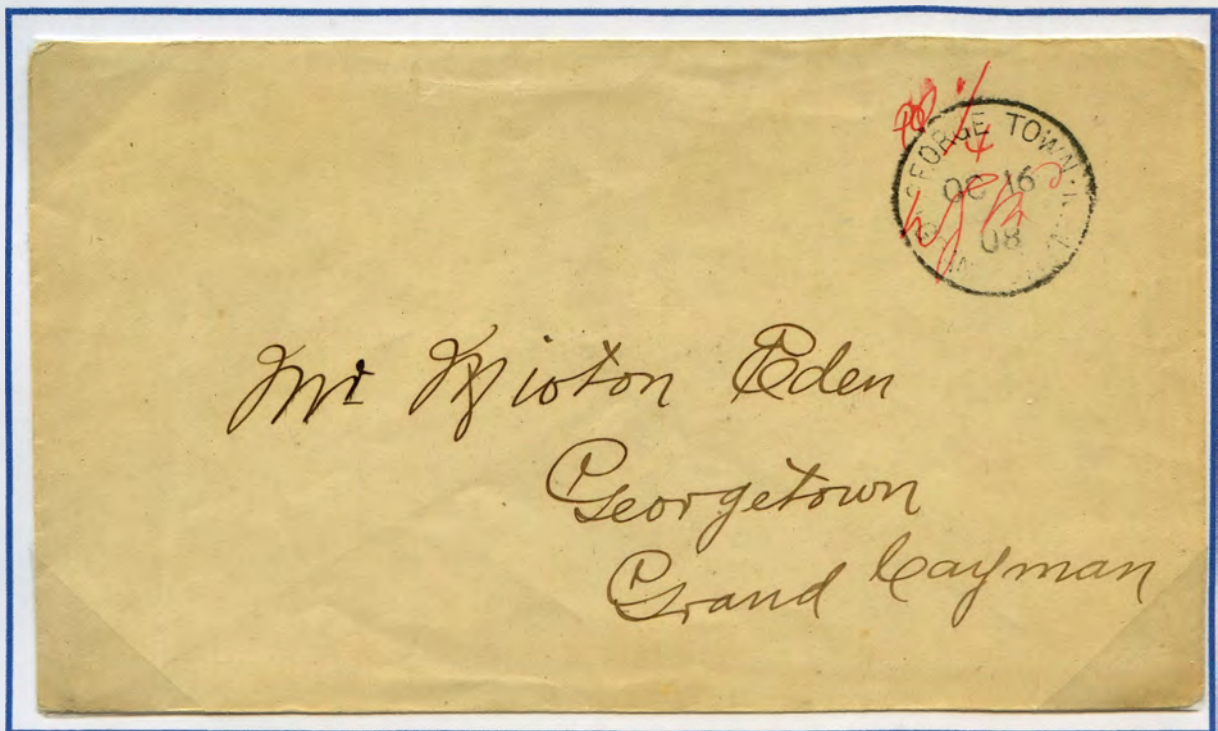 GEORGE TOWN
OC 16
08
Mr Eden
Georgetown
Grand Cayman